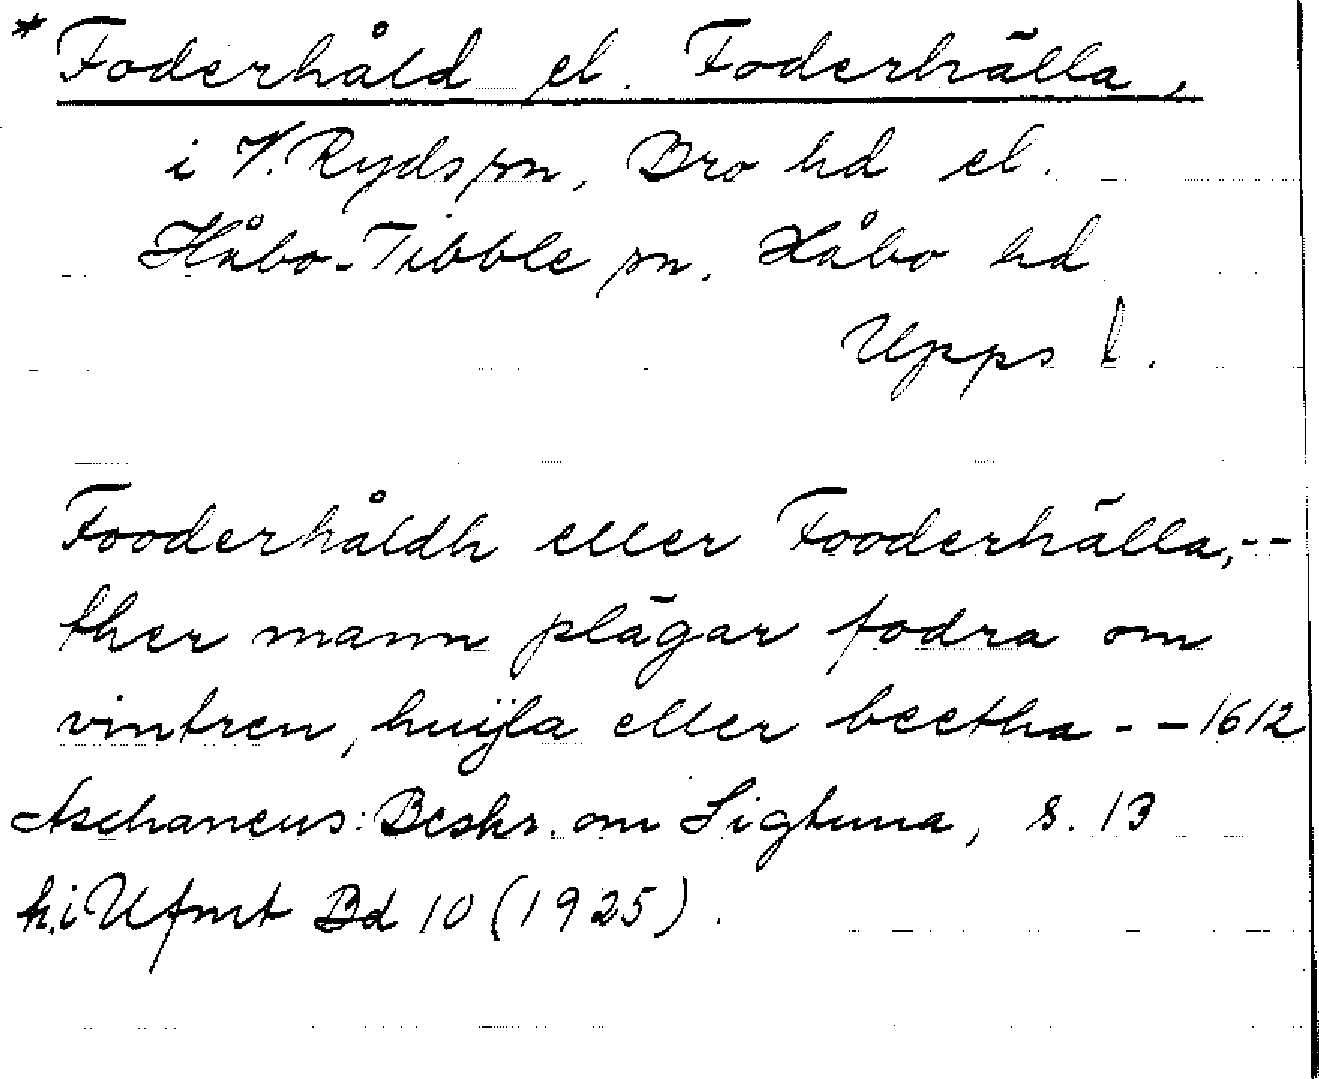 * Foderhåld el. Foderhälla,
i V. Ryds sn, Bro hd el.
Håbo-Tibble sn. Håbo hd
Upps l.
Fooderhåldh eller Fooderhälla, --
ther mann plägar fodra om
vintren, huijla eller beetha - - 1612
Aschaneus: Beskr. om Sigtuna, s. 13
h. i Ufmt Bd 10 (1925).